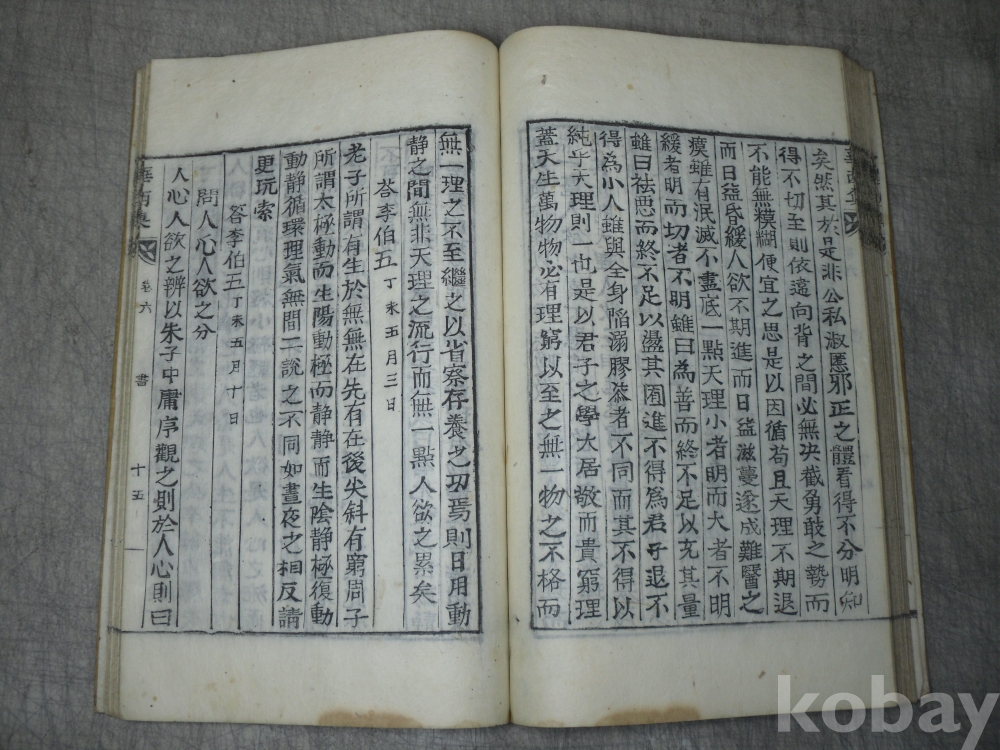 矣然其於是非公私淑慝邪正之體看得不分明知
得不切至則依違向背之間必無決截勇敢之勢而
不能無糢糊便宜之思是以因循苟且天理不期退
而日益昏緩人欲不期進而日益滋蔓遂成難醫之
瘼雖有泯滅不盡底一點天理小者明而大者不明
緩者明而切者不明雖曰爲善而終不足以充其量
雖曰袪惡而終不足以盪其囿進不得爲君子退不
得爲小人雖與全身陷溺膠漆者不同而其不得以
純乎天理則一也是以君子之學大居敬而貴窮理
蓋天生萬物物必有理窮以至之無一物之不格而
無一理之不至繼之以省察存養之功焉則日用動
静之間無非天理之流行而無一點人欲之累矣
答李伯五丁未五月三日
老子所謂有生於無無在先有在後尖斜有窮周子
所謂太極動而生陽動極而静静而生陰静極復動
動静循環理氣無間二說之不同如晝夜之相反請
更玩索
答李伯五丁未五月十日
問人心人欲之分
人心人欲之辨以朱子中庸序觀之則於人心則曰
華西集
卷六
書
十五
kobay